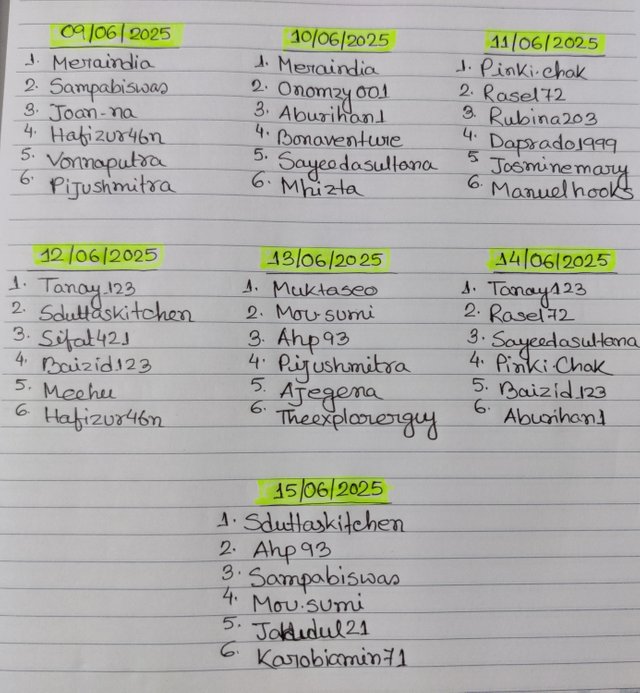 09/06/2025
1. Meraindia
2. Sampabiswas
3. Joan-na
4. Hafizur46n
5. Vonnaputra
6. Pijushmitra
10/06/2025
1. Meraindia
2. Onomzy001
3. Aburihan1
4. Bonaventure
5. Sayeedasultana
6. Mhizta
11/06/2025
1. Pinki.chak
2. Rasel72
3. Rubina203
4. Daprado1999
5. Josminemary
6. Manuelhooks
12/06/2025
1. Tanay.123
2. Sduttaskitchen
3. Sifat421
4. Baizid.123
5. Meehu
6. Hafizur46n
13/06/2025
1. Muktaseo
2. Mou.sumi
3. Ahp93
4. Pijushmitra
5. Ajegena
6. Theexplorerguy
14/06/2025
1. Tanay123
2. Rasel72
3. Sayeedasultana
4. Pinki.Chak
5. Baizid.123
6. Aburihan1
15/06/2025
1. Sduttaskitchen
2. Ahp93
3. Sampabiswas
4. Mou.sumi
5.
6. Karobiamin71